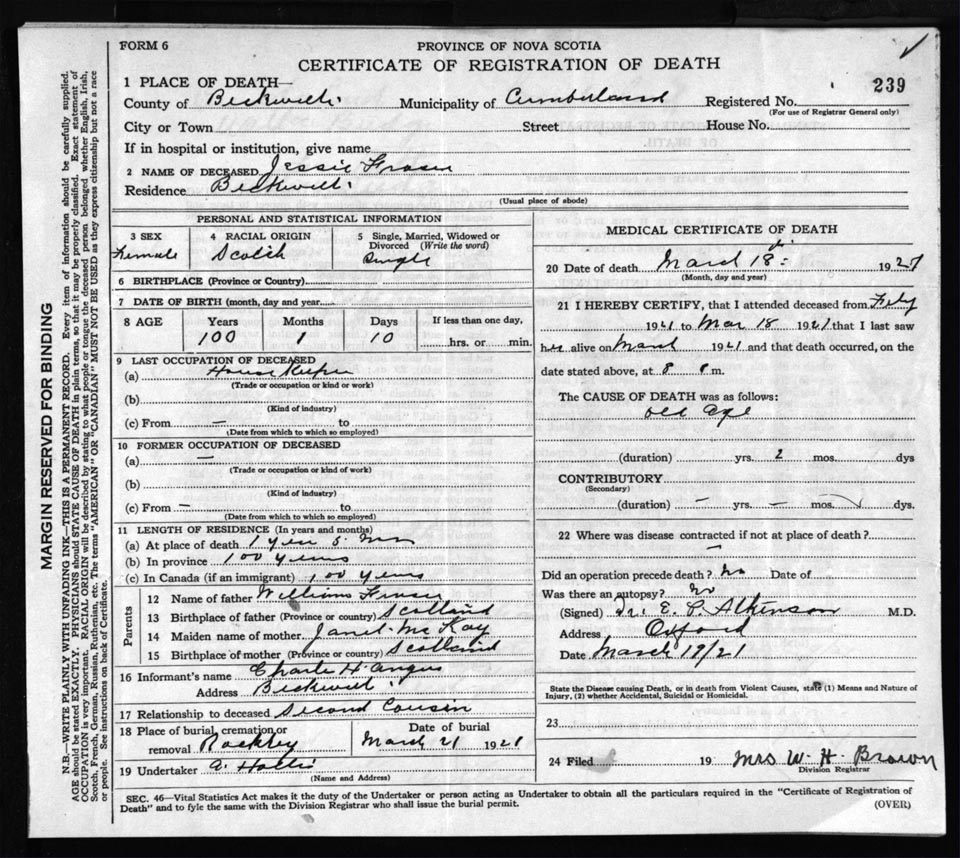 FORM 6
PROVINCE OF NOVA SCOTIA
CERTIFICATE OF REGISTRATION OF DEATH
239
1 PLACE OF DEATH—
County of Beckwith. Municipality of Cumberland Registered No.
(For use of Registrar General only)
City or Town Street House No.
If in hospital or institution, give name
2 NAME OF DECEASED Jessie Fraser
Residence Beckwith.
(Usual place of abode)
PERSONAL AND STATISTICAL INFORMATION
3 SEX
Female
4 RACIAL ORIGIN
Scotch
5 Single, Married, Widowed or
Divorced (Write the word)
Single
6 BIRTHPLACE (Province or Country)
7 DATE OF BIRTH (month, day and year)
8 AGE Years Months Days If less than one day,
100 1 10 hrs. or min.
9 LAST OCCUPATION OF DECEASED
(a) House Keeper
(Trade or occupation or kind or work)
(b)
(Kind of industry)
(c) From — to
(Date from which to which so employed)
10 FORMER OCCUPATION OF DECEASED
(a) —
(Trade or occupation or kind of work)
(b)
(Kind of industry)
(c) From — to
(Date from which to which so employed)
11 LENGTH OF RESIDENCE (In years and months)
(a) At place of death 1 year 8 mos
(b) In province 100 years
(c) In Canada (if an immigrant) 100 years
Parents
12 Name of father William Fraser
13 Birthplace of father (Province or country) Scotland
14 Maiden name of mother Janet McKay
15 Birthplace of mother (Province or country) Scotland
16 Informant's name Charle H. Angus
Address Beckwith
17 Relationship to deceased Second Cousin
18 Place of burial, cremation or
removal Rockley
Date of burial
March 21 1921
19 Undertaker A. Hollis
(Name and Address)
MEDICAL CERTIFICATE OF DEATH
20 Date of death March 18th 1921
(Month, day and year)
21 I HEREBY CERTIFY, that I attended deceased from Feby
1921 to Mar 18 1921 that I last saw
her alive on March 1921 and that death occurred, on the
date stated above, at 8 m.
The CAUSE OF DEATH was as follows:
old age
(duration) yrs. 2 mos. dys
CONTRIBUTORY
(Secondary)
(duration) — yrs. — mos. dys.
22 Where was disease contracted if not at place of death?
—
Did an operation precede death? No Date of
Was there an autopsy? No
(Signed) Dr. E. P. Atkinson M.D.
Address Oxford
Date March 19/21
State the Disease causing Death, or in death from Violent Causes, state (1) Means and Nature of
Injury, (2) whether Accidental, Suicidal or Homicidal.
23
24 Filed 19 Mrs W. H. Brown
Division Registrar
SEC. 46—Vital Statistics Act makes it the duty of the Undertaker or person acting as Undertaker to obtain all the particulars required in the "Certificate of Registration of
Death" and to fyle the same with the Division Registrar who shall issue the burial permit.
(OVER)
MARGIN RESERVED FOR BINDING
N.B.—WRITE PLAINLY WITH UNFADING INK—THIS IS A PERMANENT RECORD. Every item of information should be carefully supplied.
AGE should be stated EXACTLY. PHYSICIANS should STATE CAUSE OF DEATH in plain terms, so that it may be properly classified. Exact statement of
OCCUPATION is very important. RACIAL ORIGIN will be described by stating to what people or tongue the deceased person belonged whether English, Irish,
Scotch, French, German, Russian, Ruthenian, etc. The terms "AMERICAN" OR "CANADIAN" MUST NOT BE USED as they express citizenship but not a race
or people. See instructions on back of Certificate.